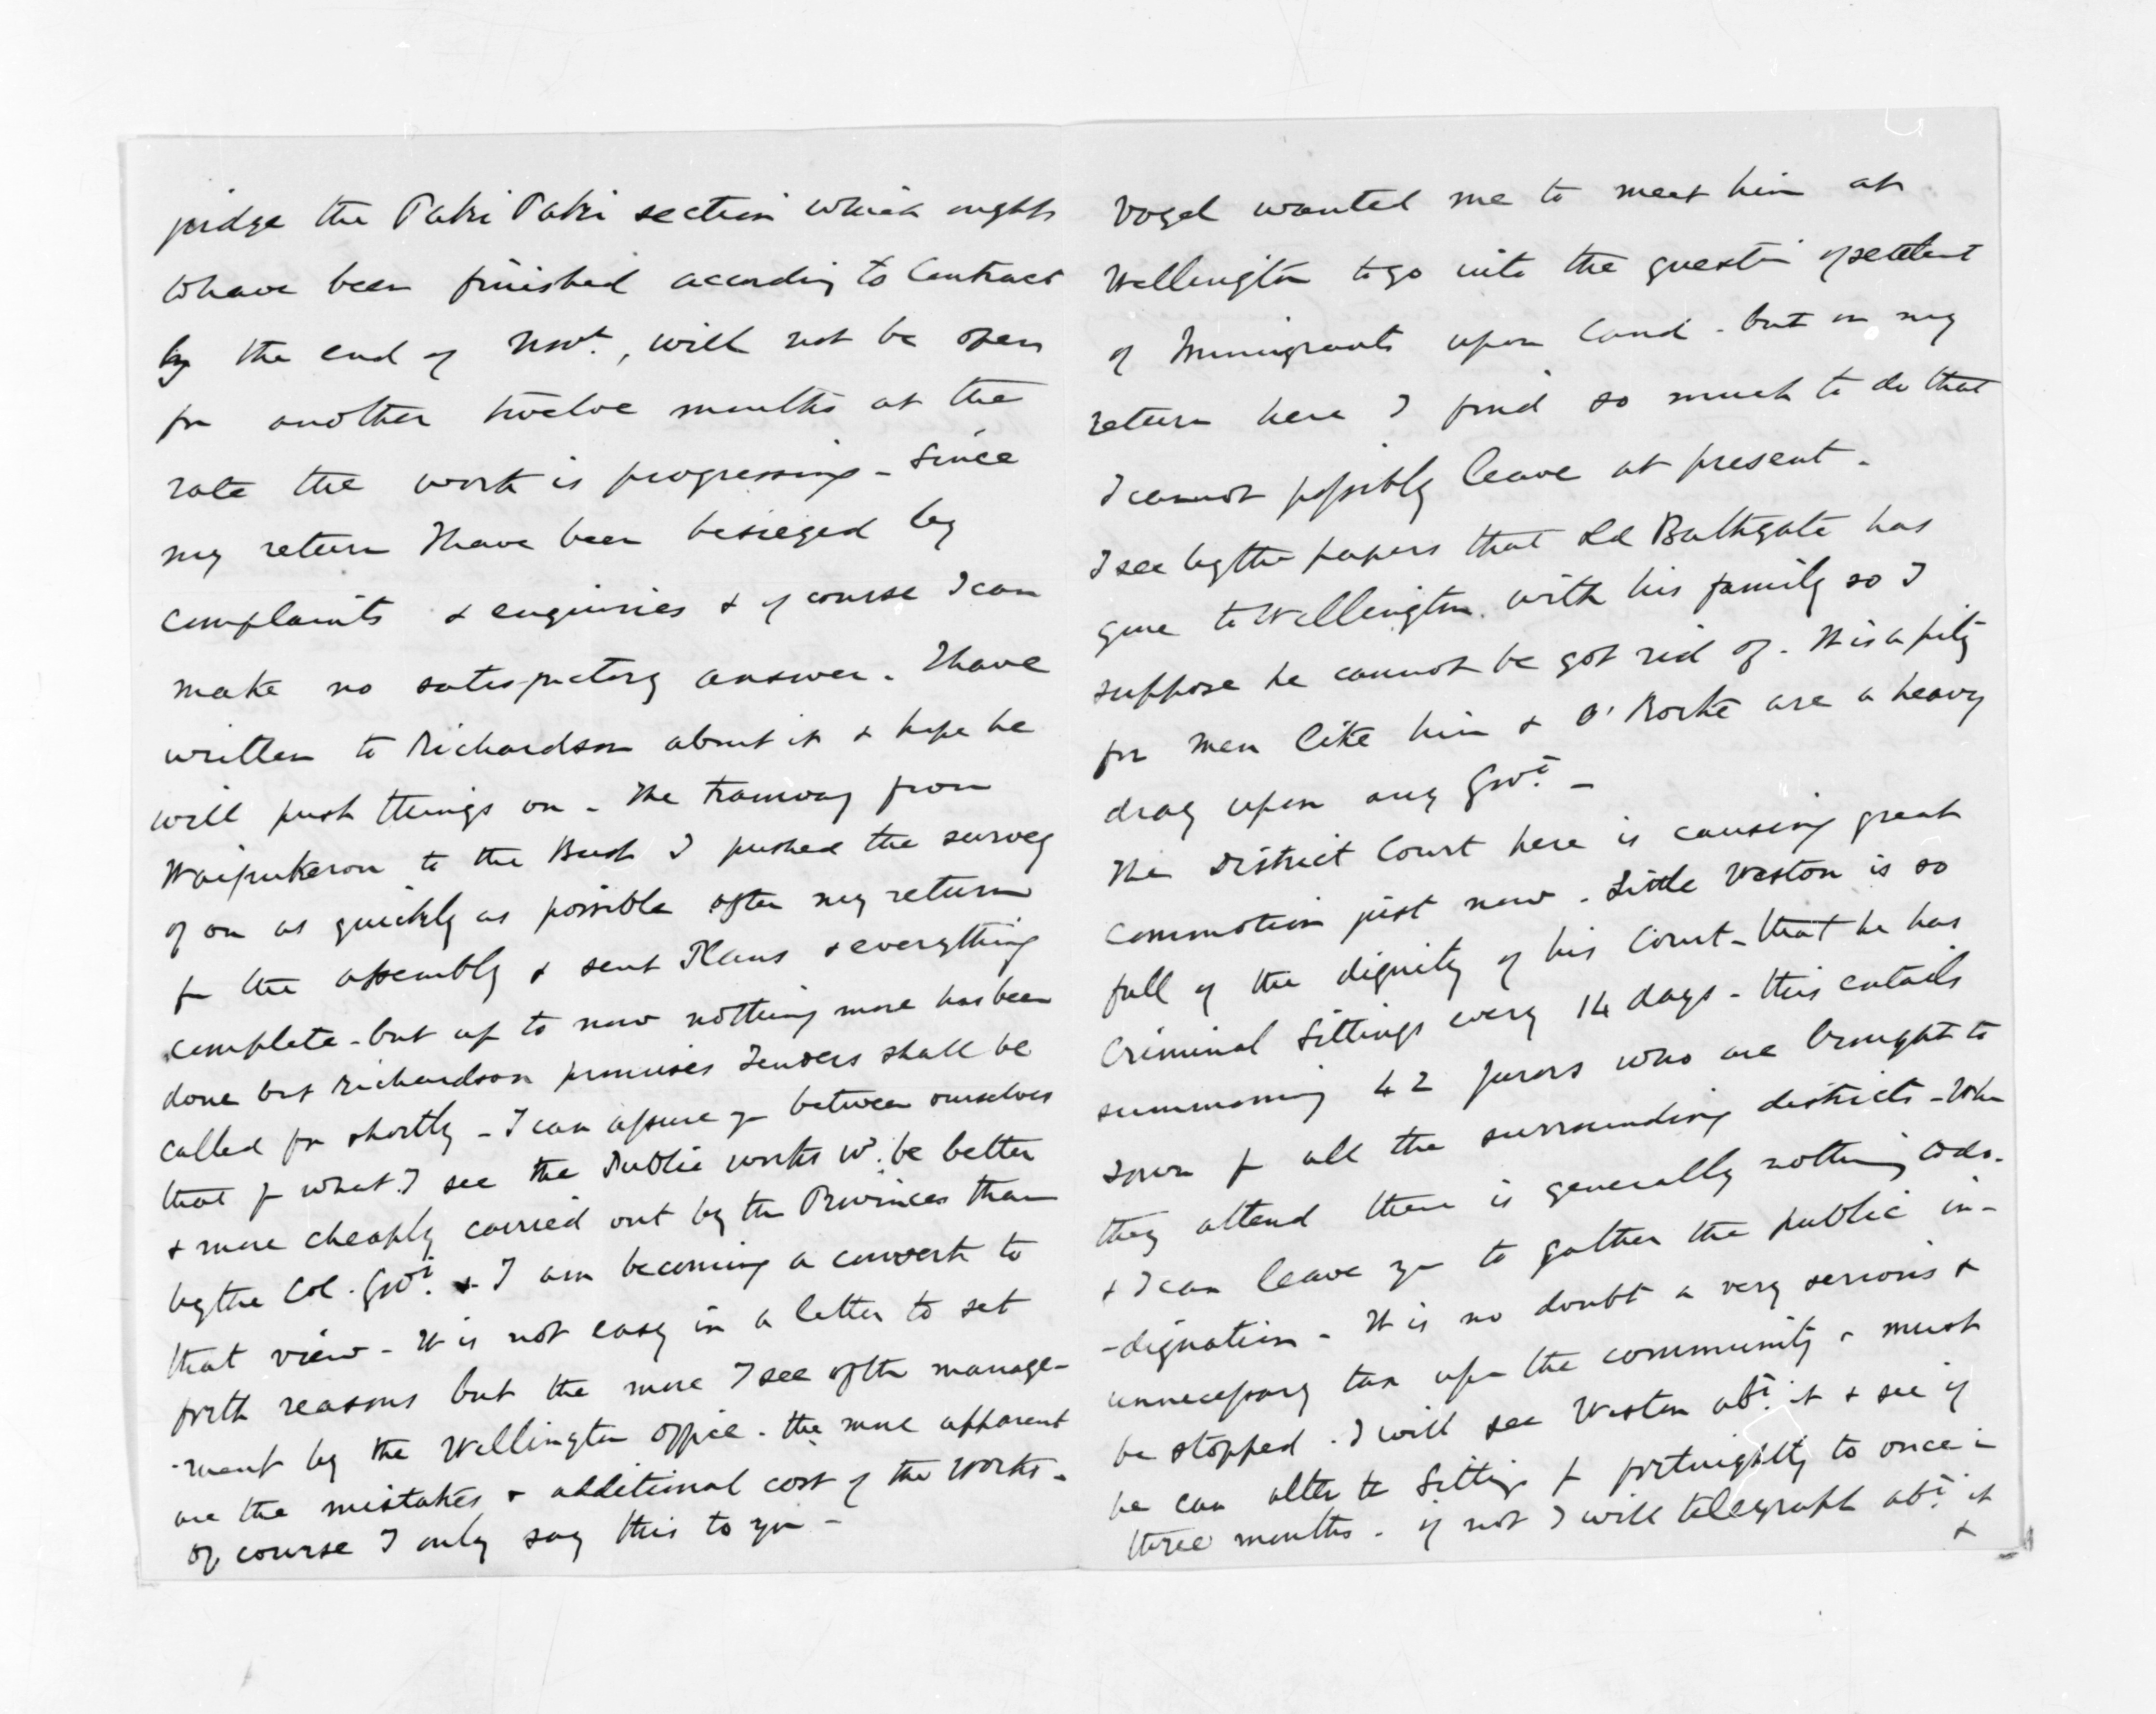 judge the Paki Paki section which ought
to have been finished according to Contract
by the end of Novr., will not be open
for another twelve months at the
rate the work is progressing - Since
my return I have been besieged by
complaints & enquiries & of course I can
make no satisfactory answer. I have
written to Richardson about it & hope he
will push things on - The tramway from
Waipukurau to the Bush I pushed the survey
of on as quickly as possible after my return
f the assembly & sent Plans & everything
complete - but up to now nothing more has been
done but Richardson promises Tenders shall be
called for shortly - I can assure yu between ourselves
that f what I see the Public works wd. be better
& more cheaply carried out by the Provinces than
by the Col. Govt. & I am becoming a convert to
that view - It is not easy in a letter to set
forth reasons but the more I see of the manage-
-ment by the Wellington office - the more apparent
are the mistakes & additional cost of the works -
Of course I only say this to you -
Vogel wanted me to meet him at
Wellington to go into the question of settlent
of Immigrants upon land - but on my
return here I find so much to do that
I cannot possibly leave at present -
I see by the papers that Ld Bathgate has
gone to Wellington with his family so I
suppose he cannot be got rid of - It is a pity
for men like him & O'Rorke are a heavy
drag upon any Govt. -
The District Court here is causing great
commotion just now - Little Weston is so
full of the dignity of his Court - that he has
Criminal Sittings every 14 days - this entails
summoning 42 jurors who are brought to
town f all the surrounding districts - When
they attend there is generally nothing to do -
& I can leave yu to gather the public in-
-dignation - It is no doubt a very serious &
unnecessary tax upon the community & must
be stopped - I will see Weston abt. it & see if
he can alter the Sittings f fortnightly to once in
three months - if not I will telegraph abt. it
&